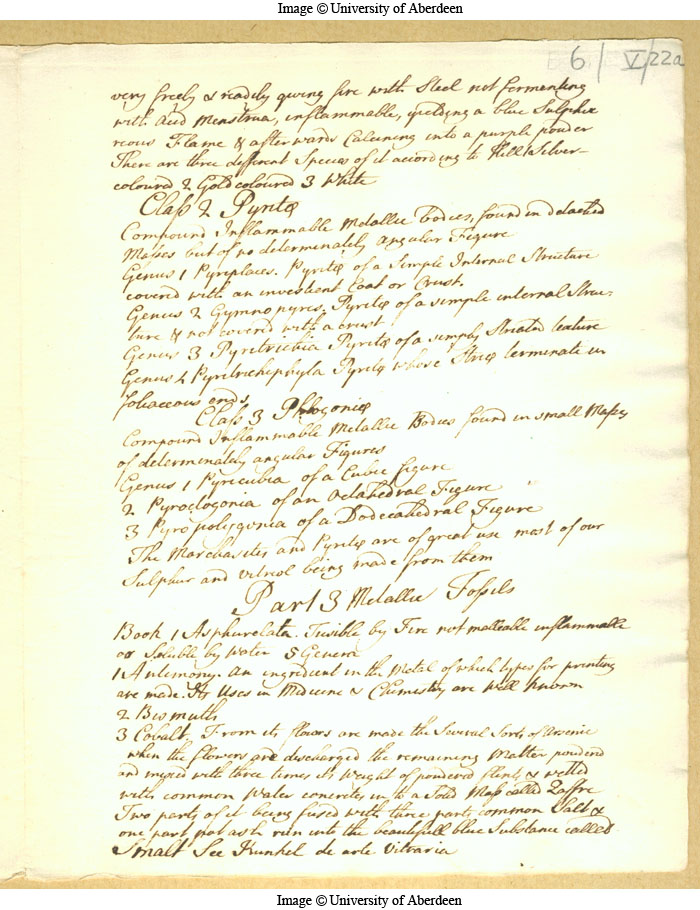 Image © University of Aberdeen
6/ V/22a
very freely & readily giving fire with Steel not fermenting
with Acid Menstrua, inflammable, yielding a blue Sulphu
reous Flame & afterwards Calcining into a purple powder
There are three different Species of it according to Hill 1 Silver-
coloured 2 Gold coloured 3 White
Class 2 Pyritæ
Compound Inflammable Metallic bodies, found in detached
Masses but of no determinately angular Figure
Genus 1 Pyriplaces. Pyritæ of a Simple Internal Structure
covered with an investient Coat or Crust.
Genus 2 Gymnopyres, Pyritæ of a simple internal Struc-
ture & not covered with a crust
Genus 3 Pyritrichia Pyritæ of a simply Striated texture
Genus 4 Pyritrichiphyla Pyritæ whose Striæ terminate in
foliaceous ends
Class 3 Phlogoniæ
Compound Inflammable Metallic Bodies found in small Masses
of determinately angular Figures
Genus 1 Pyricubia of a Cubic figure
2 Pyroctogonia of an Octahedral Figure
3 Pyropolygonia of a Dodecahedral Figure
The Marchasites and Pyritæ are of great use most of our
Sulphur and vitriol being made from them
Part 3 Metallic Fossils
Book 1 Asphurelata. Fusible by Fire not malleable inflammable
or Soluble by Water 5 Genera
1 Antimony. an ingredient in the Metal of which types for printing
are made. Its Uses in Medicine & Chemistry are well known
2 Bismuth
3 Cobalt. From its flowers are made the Several Sorts of Arsenic
when the flowers are discharged the remaining Matter powdered
and mixed with three times its Weight of powdered flints & wetted
with common Water concretes in to a Solid Mass called Zaffre
Two parts of it being fused with three parts common Salt &
one part pot ash run into the beautifull blue Substance called
Smalt See Kunkel de arte Vitraria
Image © University of Aberdeen